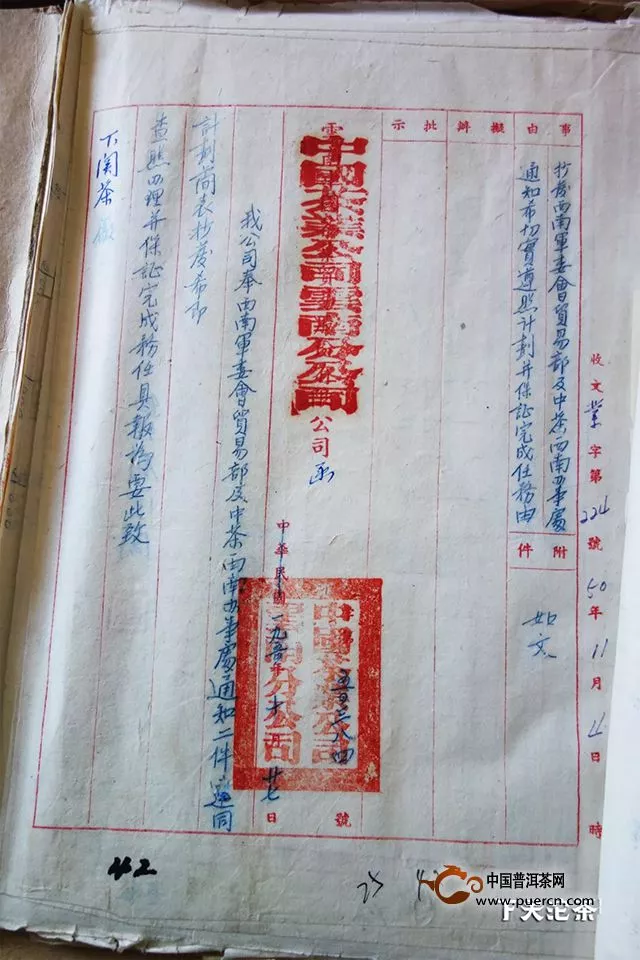 收文業字第224號 50年11月 日 時
事由擬辦批示
抄發西南軍委會貿易部及中茶西南办事處
通知希切實遵照計划并保証完成任務由
附件
如文
中國茶業公司雲南分公司
公司函
中華民國一九五〇年十月廿七日
號
中國茶業公司
雲南分公司
我公司奉西南軍委會貿易部及中茶西南办事處通知二件連同
計划尚表抄發希即
查照办理并保証完成務任具報為要此致
下関茶廠
442
中国普洱茶网
www.puercn.com